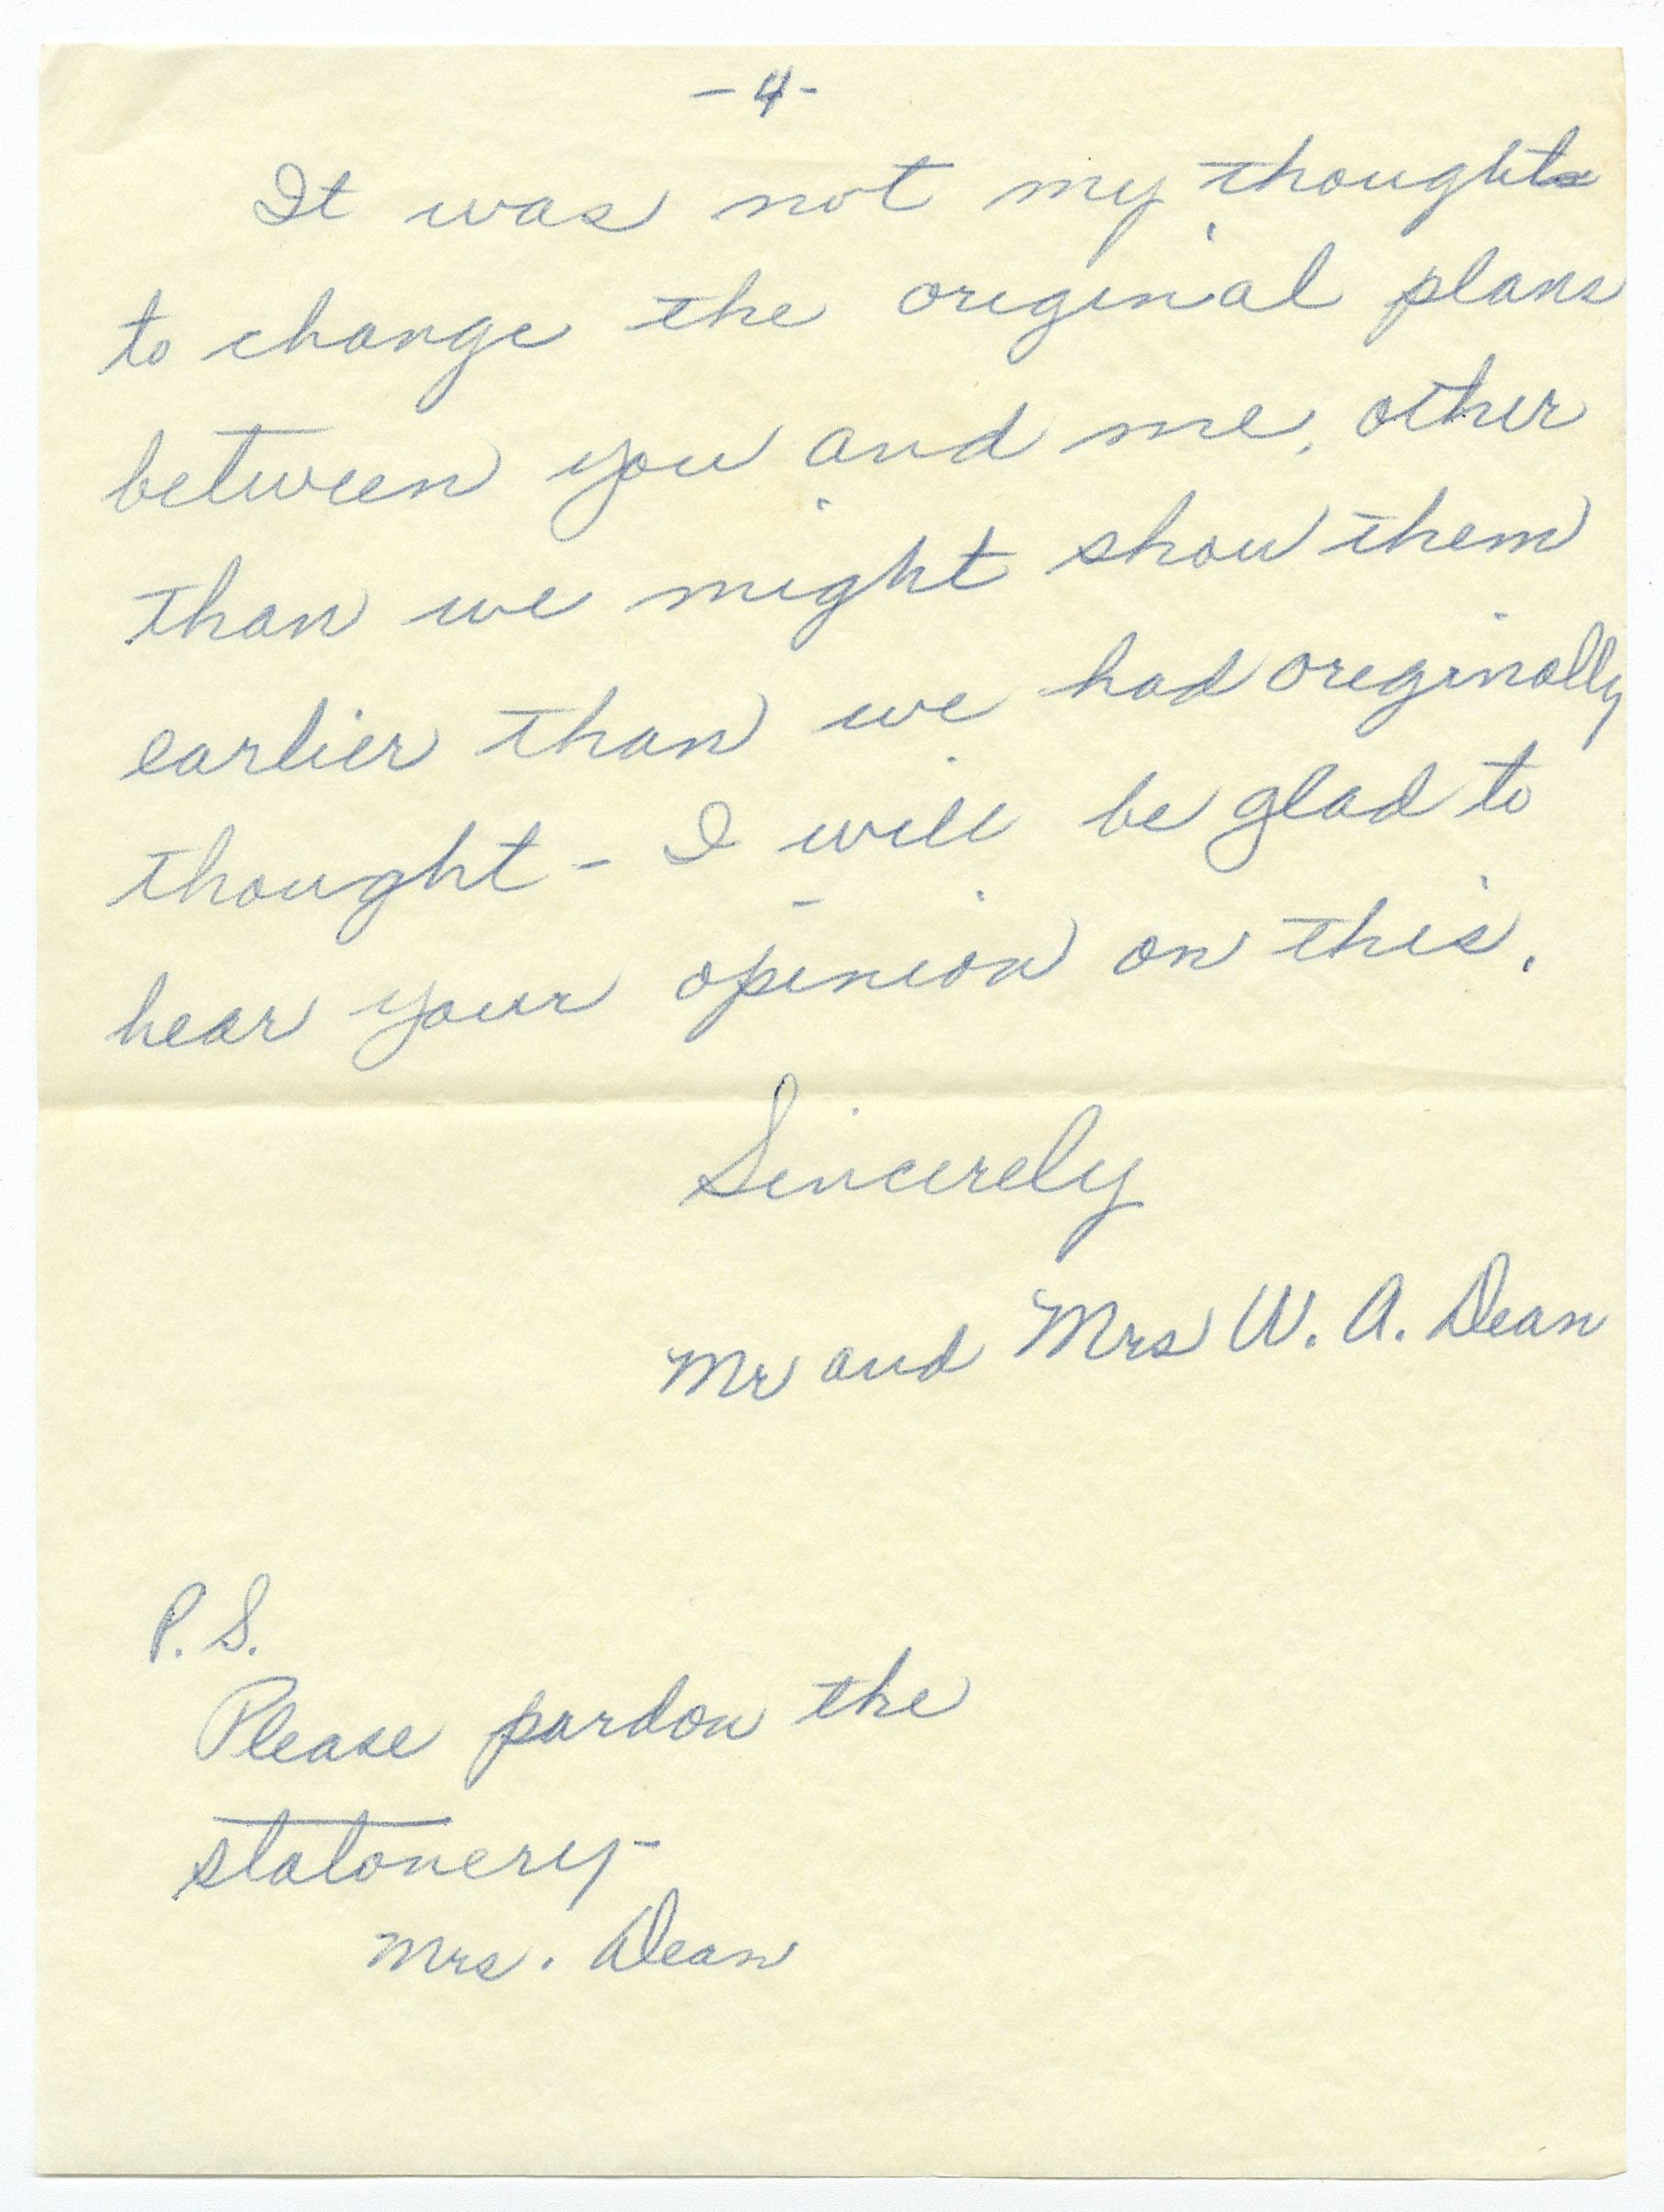 - 4 -
It was not my thought
to change the original plans
between you and me, other
than we might show them
earlier than we had originally
thought - I will be glad to
hear your opinion on this.
Sincerely
Mr and Mrs W. A. Dean
P. S.
Please pardon the
statonery -
Mrs. Dean